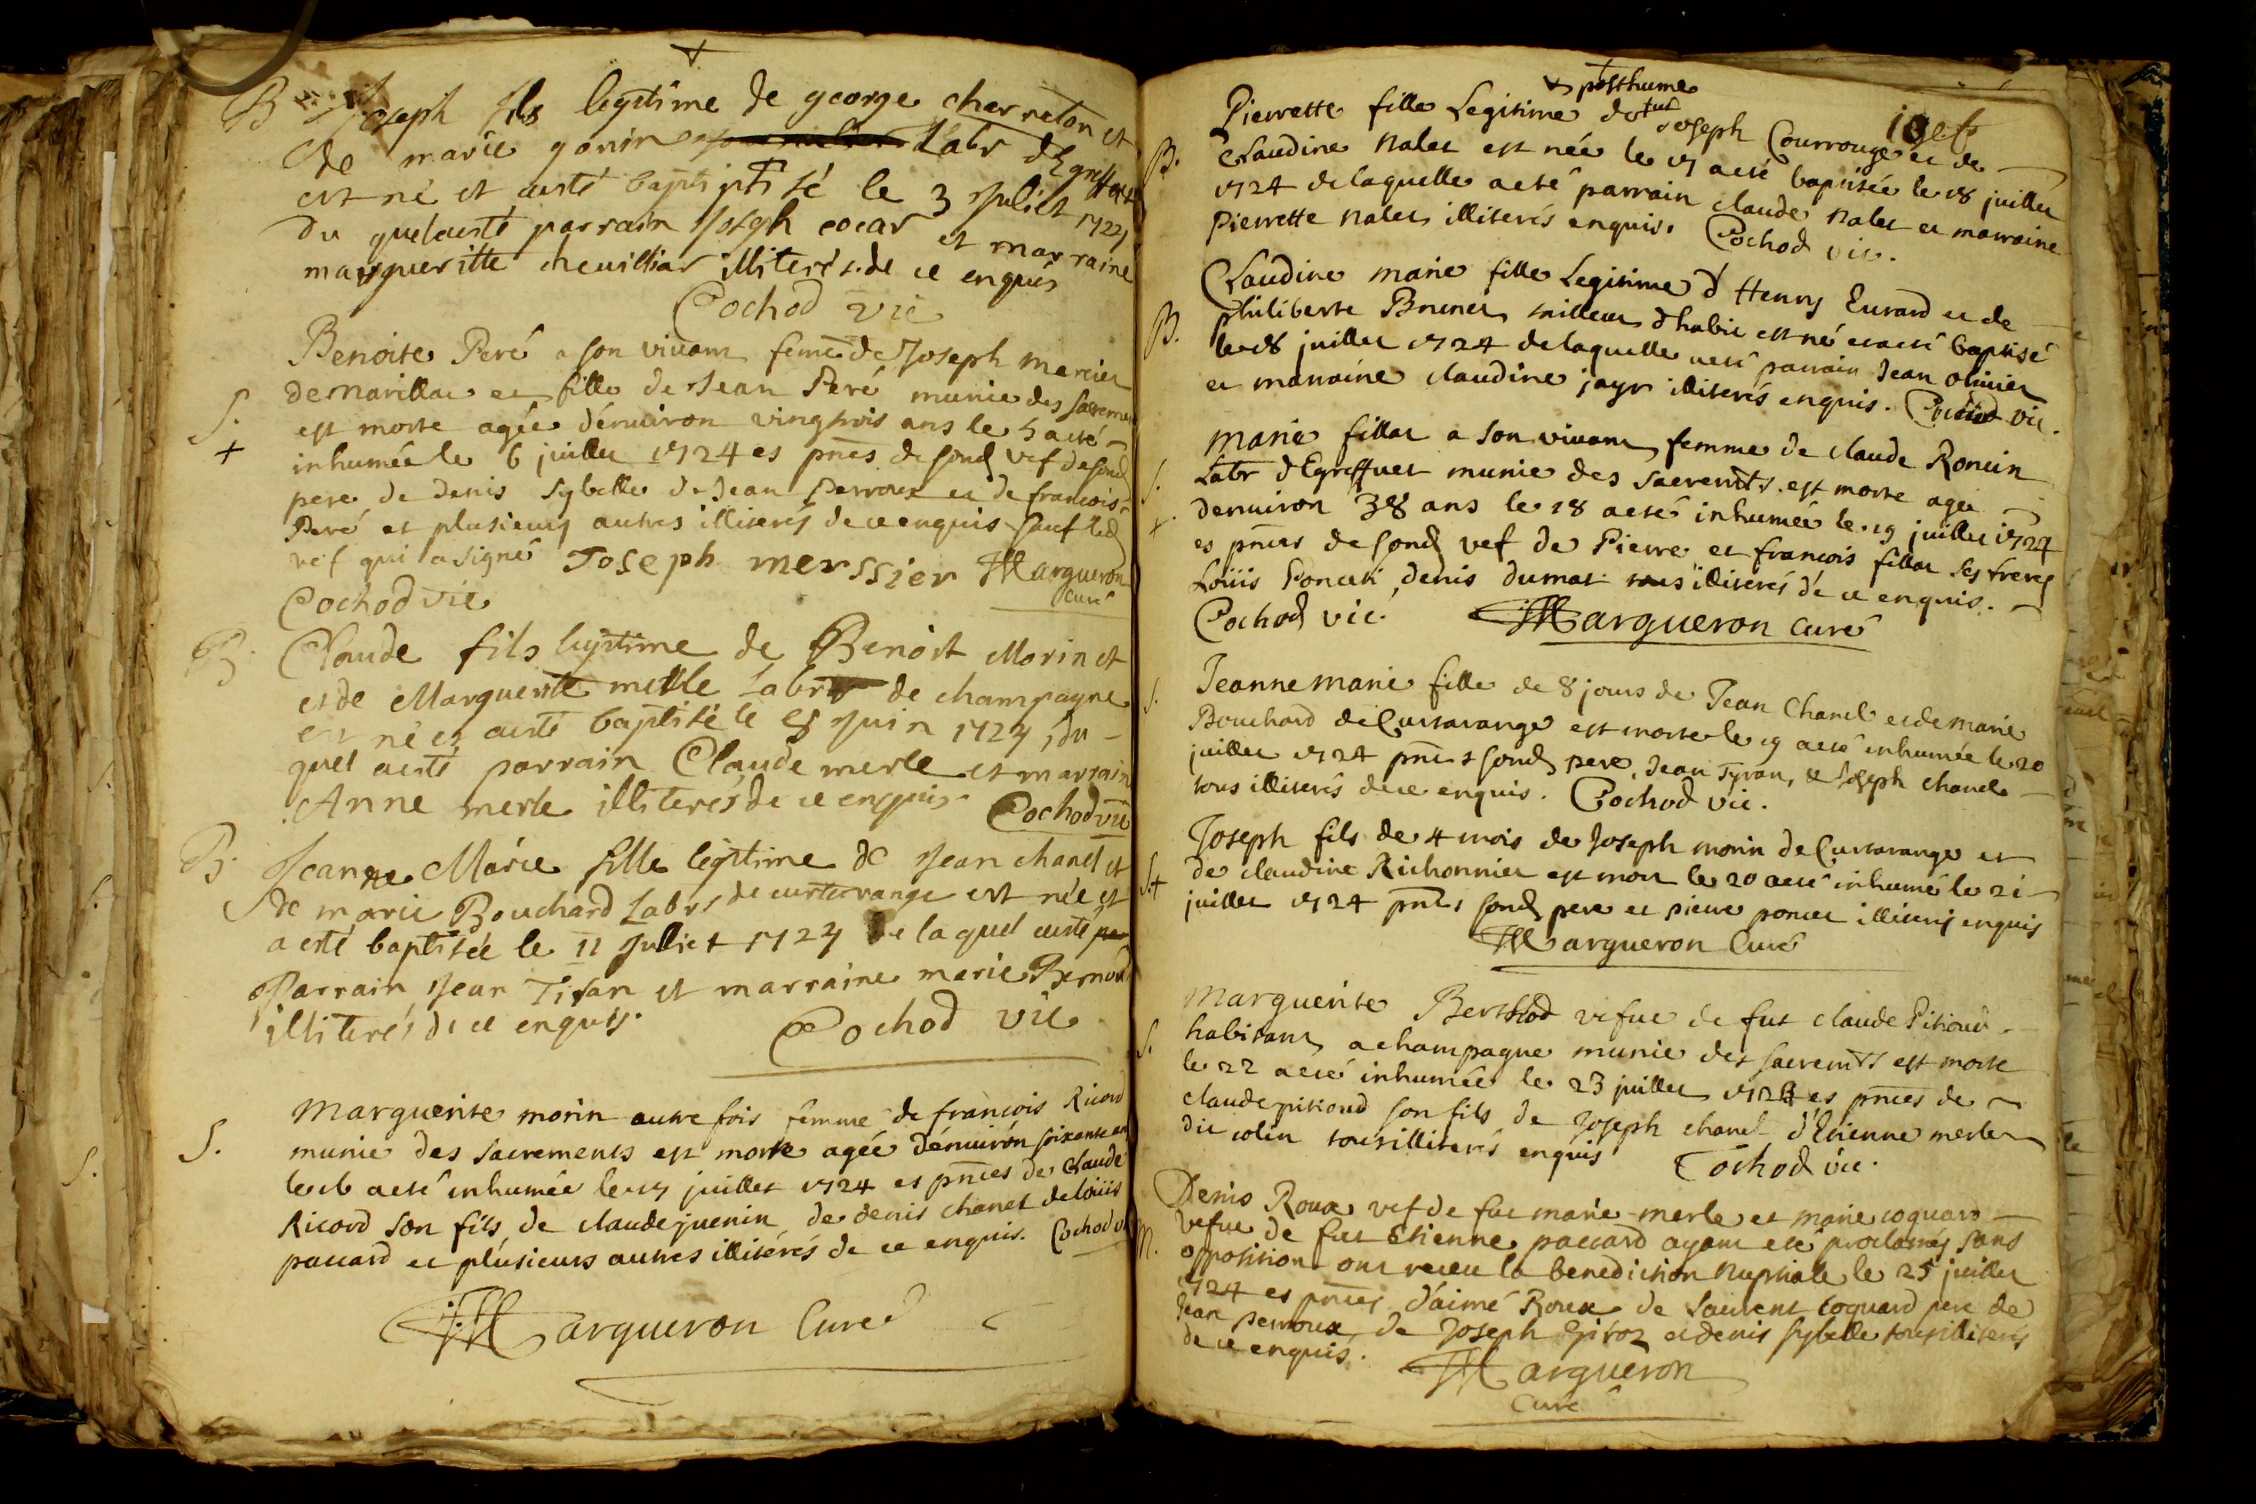 B Joseph fils legitime de george charreton et
de marie gonin Labr d'Egreffuet
est né et aesté baptisé le 3 Juliet 1724
du quel aesté parrain Joseph cocar et marraine
margueritte cheuilliar illiterés de ce enquis
Cochod vic
Benoite Peré a son viuant feme de Joseph mercier
de marillac et fille de Jean Peré munie des sacremen
S. est morte agée dénuiron vingtrois ans le 5 aeté
+ inhumée le 6 juillet 1724 es pnces de sond vef de sond
pere de denis sybelle de Jean perroux et de francois
Peré et plusieurs autres illiterés de ce enquis sauf led
vef qui a signé Joseph merssier Margueron
Cochod vic curé
B. Claude fils legitime de Benoit Morin et
et de Marguerite merle Labrs de champagne
est né et aesté baptisé le Juin 1724, du
quel aesté parrain Claude merle et marrain
Anne merle illiterés de ce enquis Cochod vic
B. Jeanne Marie fille legitime de Jean chanel et
de marie Bouchard Labrs de curtarange est née et
a esté baptisée le 11 Julliet 1724 de laquel aesté
Parrain Jean Tiran et marraine marie Bernoud
illiterés de ce enquis. Cochod vic
Marguerite morin autre fois femme de francois Ricard
S. munie des sacrements est morte agée dénuirón soixante an
le 16 aeté inhumée le 17 juillet 1724 es pnces de Claude
Ricard son fils de claude juenin de denis chanel de loüis
paccard et plusieurs autres illiterés de ce enquis. Cochod vi
Margueron Curé
+ posthume
Pierrette fille Legitime de fut Joseph Courrouge et de
B. Claudine Nalet est née le 17 aeté baptisée le 18 juillet
1724 de laquelle aeté parrain claude Nalet et marraine
Pierrette Nalet illiterés enquis. Cochod vic.
Claudine marie fille Legitime d'Henry Eurard et de
B. philiberte Brunet tailleur d'habit est né et aeté baptisé
le 18 juillet 1724 de laquelle aeté parrain Jean oliuier
et marraine claudine jayr illiterés enquis. Cochod vic.
Marie fillat a son viuant femme de claude Roncin
S. Labr d'Egreffuet munie des sacremts est morte agée
+ denuiron 38 ans le 18 aeté inhumée le 19 juillet 1724
es pnces de sond vef de Pierre et francois fillat ses freres
Loüis Poncet, denis dumas tous illiterés de ce enquis.
Cochod vic. Margueron curé
S. Jeanne marie fille de 8 jours de Jean Chanel et de marie
Bouchard de Curtarange est morte le 19 aeté inhumée le 20
juillet 1724 pnces sond pere, Jean Tyran, et Joseph chanel
tous illiterés de ce enquis. Cochod vic.
Joseph fils de 4 mois de Joseph morin de Curtarange et
S.+ de claudine Richonnier est mort le 20 aeté inhumé le 21
juillet 1724 pnces sond pere et pierre poncet illiterés enquis
Margueron Curé
Marguerite Berthod vefue de fut claude Pitioud
S. habitant a champagne munie des sacremts est morte
le 22 aeté inhumée le 23 juillet 1724 es pnces de
claude pitioud son fils de Joseph chanel d'Etienne merle
dit colin tous illiterés enquis Cochod vic.
Denis Roux vef de fue marie merle et marie coquard
M. vefue de fut Etienne paccard ayant eté proclamés sans
opposition ont receu la benediction Nuptiale le 25 juillet
1724 es pnces d'aimé Roux de Laurent coquard pere de
Jean perroux de Joseph Giroz et denis sybelle tous illiterés
de ce enquis. Margueron
Curé